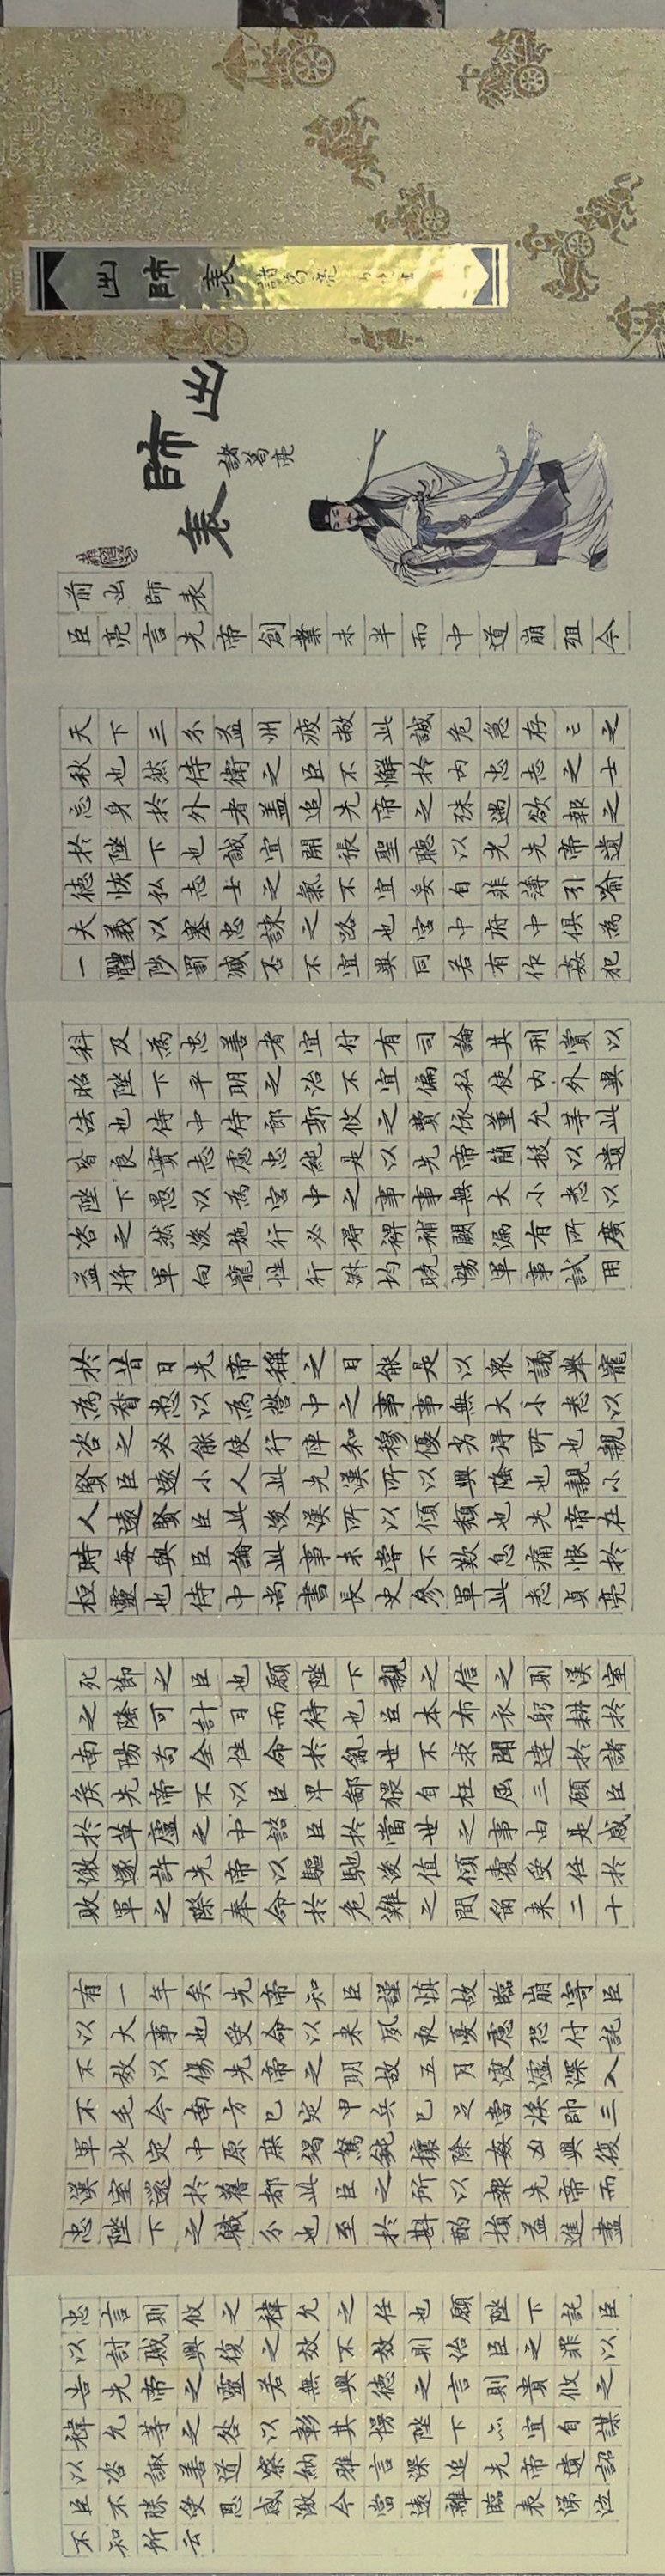 出師表
諸葛亮
出師表
諸葛亮
前出師表
臣亮言先帝創業未半而中道崩殂今
天下三分益州疲敝此誠危急存亡之
秋也然侍衛之臣不懈於内忠志之士
忘身於外者蓋追先帝之殊遇欲報之
於陛下也誠宜開張聖聽以光先帝遺
德恢弘志士之氣不宜妄自菲薄引喻
失義以塞忠諫之路也宮中府中俱為
一體陟罰臧否不宜異同若有作姦犯
科及為忠善者宜付有司論其刑賞以
昭陛下平明之治不宜偏私使内外異
法也侍中侍郎郭攸之費依董允等此
皆良實志慮忠純是以先帝簡拔以遺
陛下愚以為宮中之事事無大小悉以
咨之然後施行必得裨補闕漏有所廣
益將軍向寵性行淑均曉暢軍事試用
於昔日先帝稱之曰能是以衆議舉寵
為督愚以為營中之事事無大小悉以
咨之必能使行陣和穆優劣得所也親
賢臣遠小人此先漢所以興隆也親小
人遠賢臣此後漢所以傾頹也先帝在
時每與臣論此事未嘗不歎息痛恨於
桓靈也侍中尚書長史參軍此悉貞亮
死節之臣也願陛下親之信之則漢室
之隆可計日而待也臣本布衣躬耕於
南陽苟全性命於亂世不求聞達於諸
侯先帝不以臣卑鄙猥自枉屈三顧臣
於草廬之中諮臣於當世之事由是感
激遂許先帝以驅馳後值傾覆受任於
敗軍之際奉命於危難之間爾来二十
有一年矣先帝知臣謹慎故臨崩寄臣
以大事也受命以来夙夜憂慮恐付託
不效以傷先帝之明故五月渡瀘深入
不毛今南方已定甲兵已足當獎帥三
軍北定中原庶竭駑鈍攘除姦凶興復
漢室還於舊都此臣之所以報先帝而
忠陛下之職分也至於斟酌損益進盡
忠言則攸之禕允之任也願陛下託臣
以討賊興復之效不效則治臣之罪以
告先帝之靈若無興德之言則責攸之
禕允等之咎以彰其慢陛下亦宜自謀
以咨諏善道察納雅言深追先帝遺詔
臣不勝受恩感激今當遠離臨表涕泣
不知所云